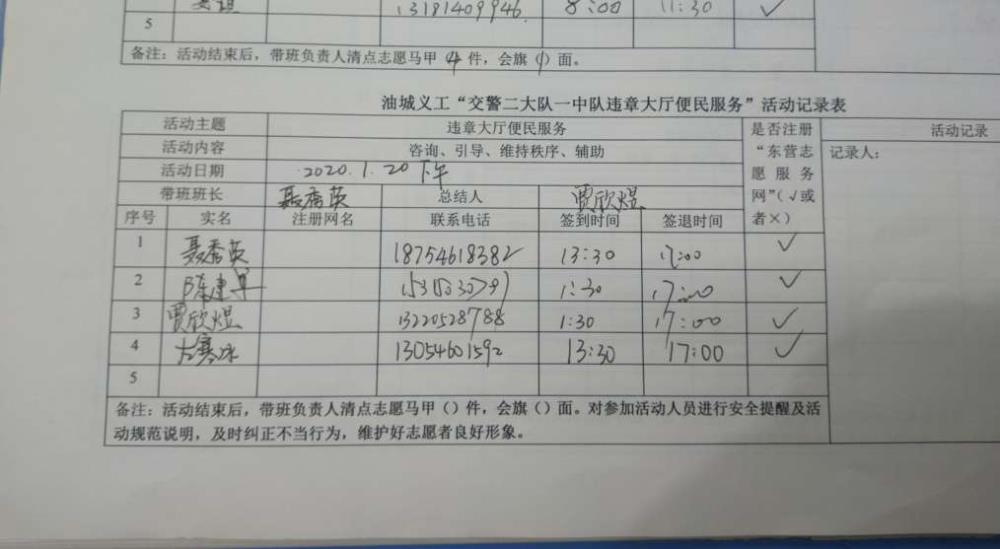 13181409946 8:00 11:30 ✓
5
备注：活动结束后，带班负责人清点志愿马甲 4 件，会旗（1）面。
油城义工“交警二大队一中队违章大厅便民服务”活动记录表
活动主题 违章大厅便民服务 是否注册“东营志愿服务网”（√或者×） 活动记录
活动内容 咨询、引导、维持秩序、辅助 记录人：
活动日期 2020.1.20下午
带班班长 聂秀英 总结人 贾欣煜
序号 实名 注册网名 联系电话 签到时间 签退时间
1 聂秀英 18754618382 13:30 17:00 ✓
2 陈建 1:30 17:00 ✓
3 贾欣煜 13220528788 1:30 17:00 ✓
4 13054601592 13:30 17:00 ✓
5
备注：活动结束后，带班负责人清点志愿马甲（）件，会旗（）面。对参加活动人员进行安全提醒及活
动规范说明，及时纠正不当行为，维护好志愿者良好形象。